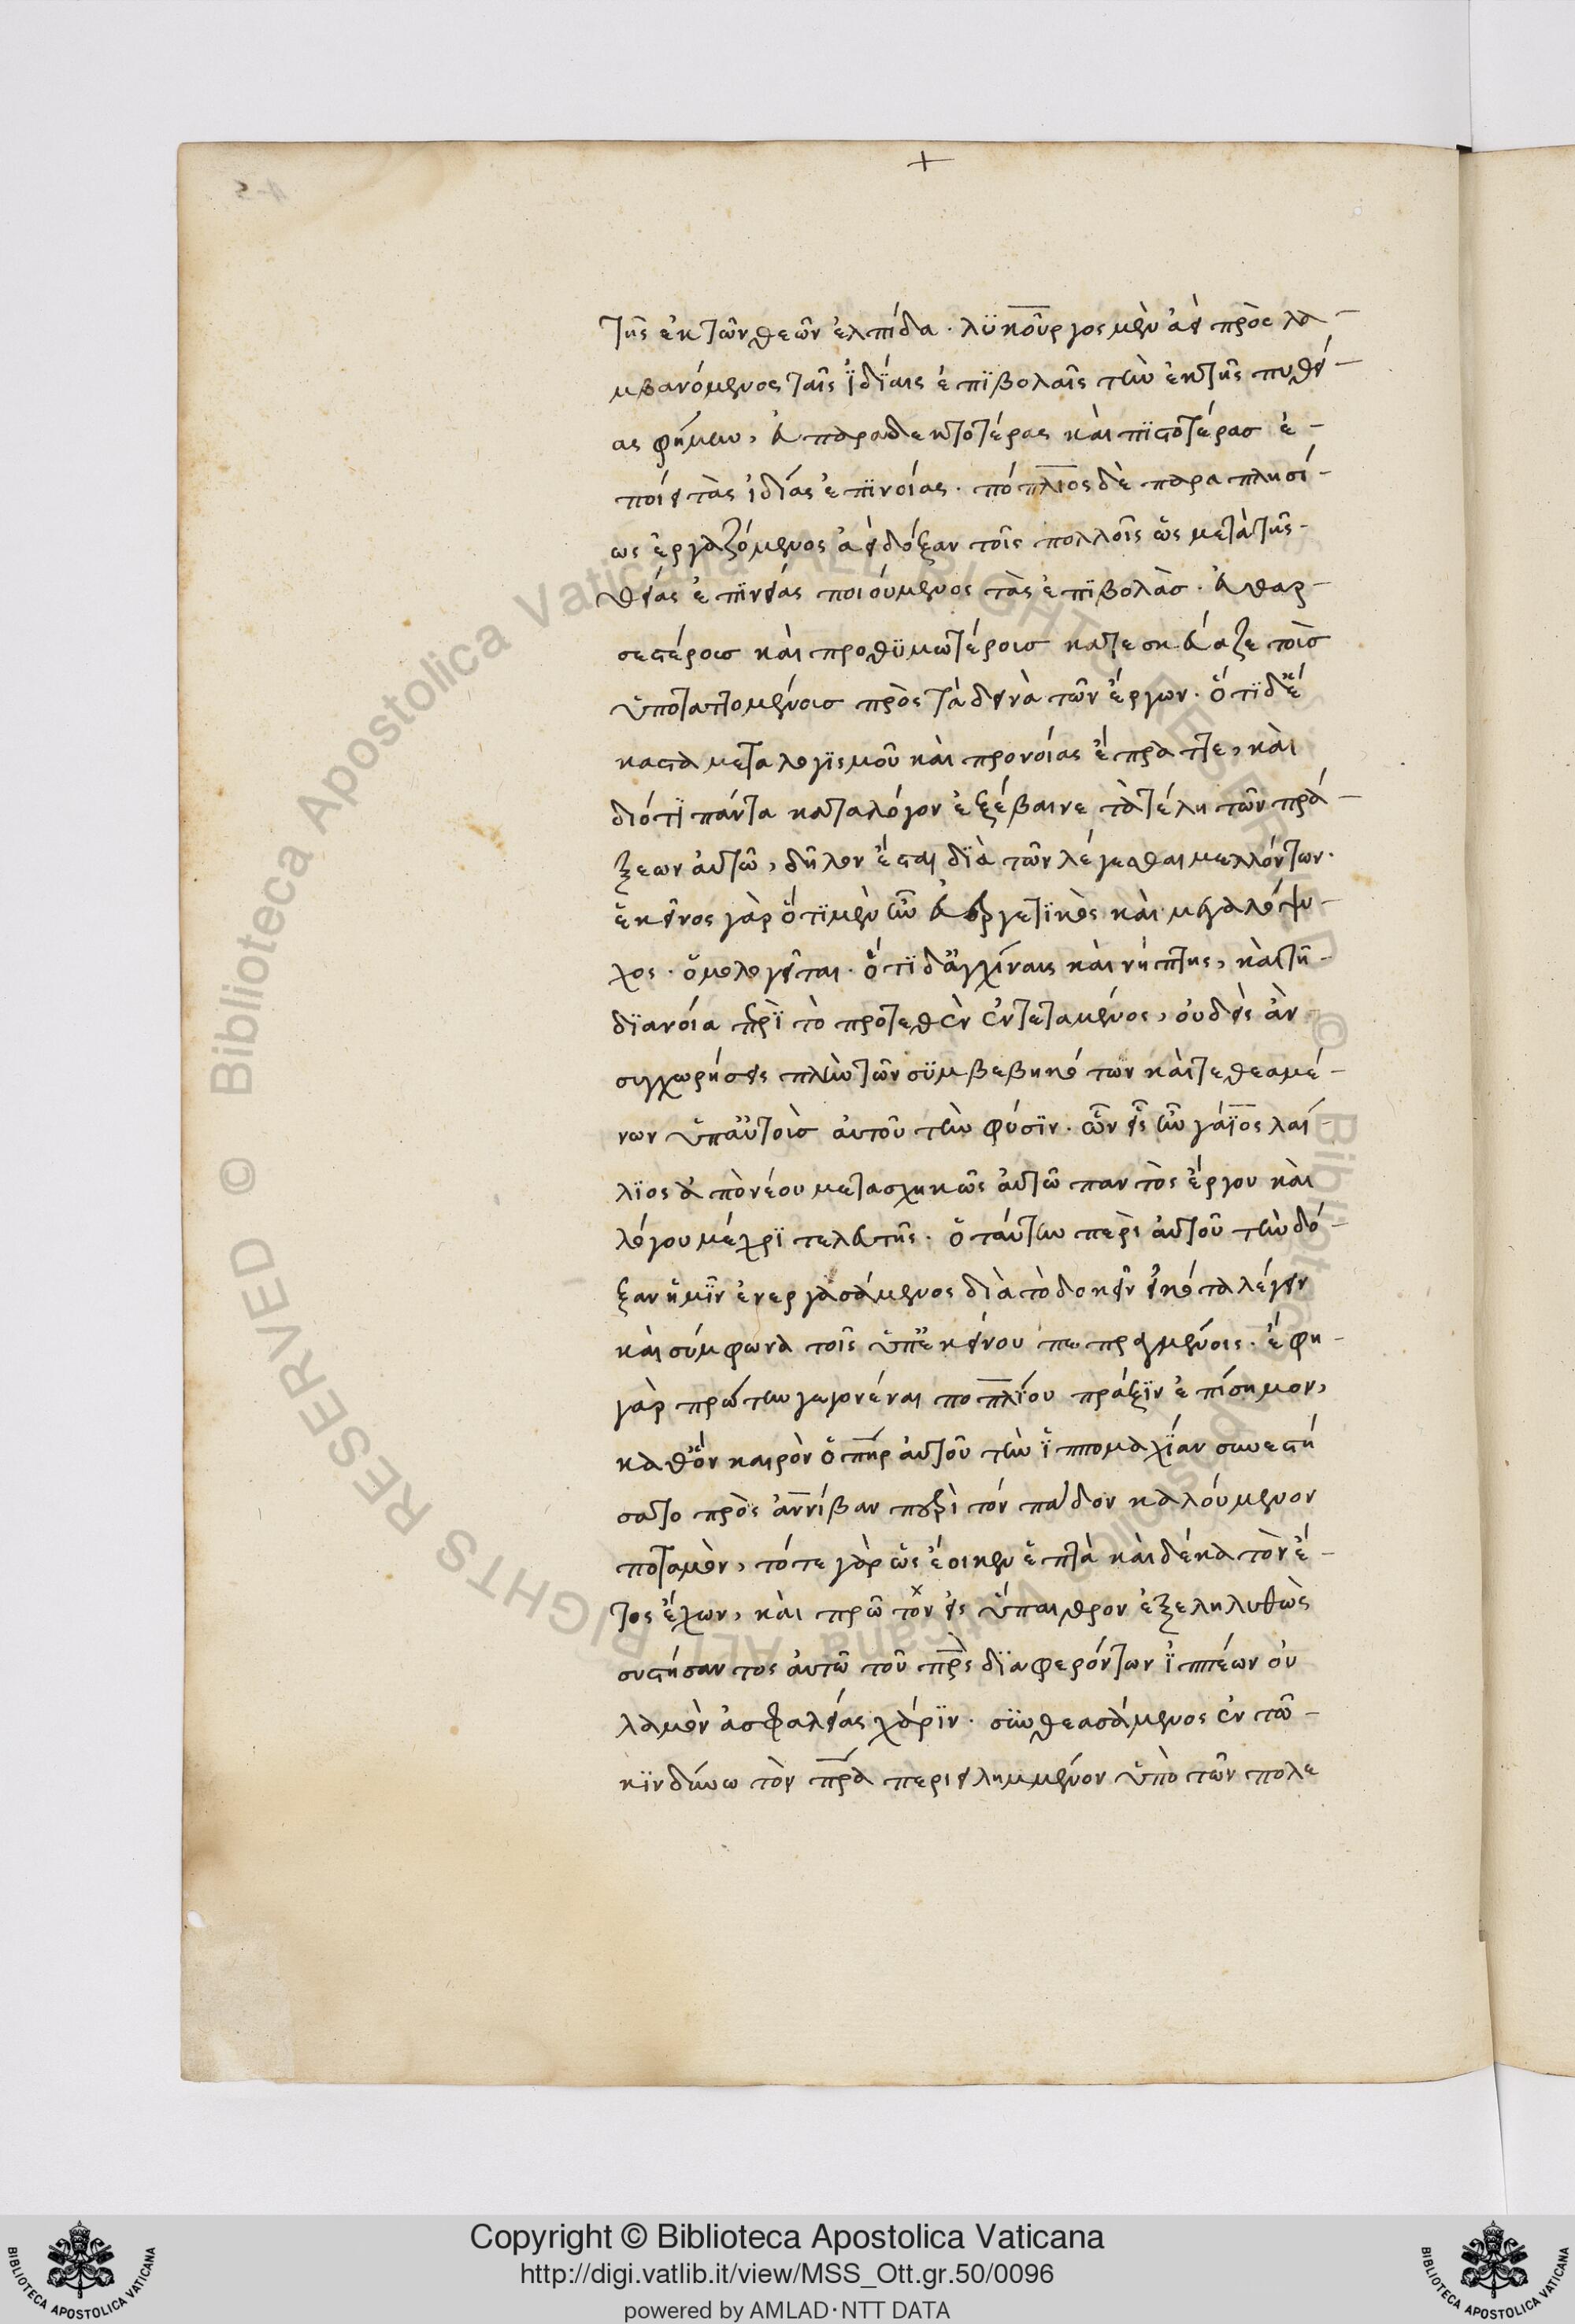 +
τῆς ἐκ τῶν θεῶν ἐλπίδα. λϋκοῦργος μὲν ἀεὶ προς λα-
μβανόμενος ταῖς ϊδίαις ἐπϊβολαῖς τὴν ἐκ τῆς πυθεί-
ας φήμην, εὐπαραδεκτοτέρας καὶ πϊστοτέρασ ἐ-
ποίει τὰς ἰδίας ἐπϊνοίας. πόπλιος δὲ παραπλησί-
ως ἐργαζόμενος ἀεὶ δόξαν τοῖς πολλοῖς ὡς μετὰ τῆς-
θείας ἐπϊνείας ποιούμενος τὰς ἐπϊβολὰσ. εὐθαρ-
σεστέροισ καὶ προθϋμωτέροισ κατεσκεύαζε τοῖσ
ὑποταττομένοισ πρὸς τὰ δεινὰ τῶν ἔργων. ὅτϊ δ' ἕ
καστα μετα λογϊσμοῦ καὶ προνοίας ἔπραττε, καὶ
διότϊ πάντα καταλόγον ἐξέβαινε τὰ τέλη τῶν πρά-
ξεων αὐτῶ, δῆλον ἔσται δϊὰ τῶν λέγεσθαι μελλόντων.
ἐκεῖνος γὰρ ὅτϊ μὲν ἦν εὐεργετϊκὸς καὶ μεγαλόψυ-
χος. ὁμολογεῖται. ὅτϊ δ' ἀγχίναις καὶ νήπτης, καὶ τῆ-
δϊανοία περὶ τὸ προτεθὲν ἐντεταμένος, οὐδεὶς ἂν
συγχωρήσεις πλὴν τῶν σϋμβεβηκότων καὶ τεθεαμέ-
νων ὑπ' αὐτοῖσ αὐτοῦ τὴν φύσϊν. ὧν εἷς ἦν γάϊος λαί-
λϊος ἀπὸ νέου μετασχηκὼς αὐτῶ παντὸς ἔργου καὶ
λόγου μέχρϊ τελευτῆς. ὁ ταύτην περὶ αὐτοῦ τὴν δό-
ξαν ἡμῖν ἐνεργασάμενος δϊὰ τὸ δοκεῖν εἰκότα λέγειν
καὶ σύμφωνα τοῖς ὑπ' ἐκείνου πεπραγμένοις. ἔφη-
γὰρ πρώτην γεγονέναι ποπλίου πράξϊν ἐπίσημον,
καθ' ὃν καιρὸν ὁ πῆρ αὐτοῦ τὴν ϊππομαχίαν συνεστή
σατο πρὸς ἀννίβαν περὶ τόν πα'δον καλούμενον
ποταμὸν, τότε γὰρ ὡς ἔοικεν ἑπτὰ καὶ δέκα τὸν ἔ-
τος ἔχων, καὶ πρῶτον εἰς ὕπαιθρον ἐξεληλυθὼς
συστήσαντος αὐτῶ τοῦ πρς δϊαφερόντων ϊππέων οὐ
λαμὸν ἀσφαλείας χάρϊν. συνθεασάμενος ἐν τῶ-
κϊνδύνω τὸν πρα περιειλημμένον ὑπὸ τῶν πολε
Copyright © Biblioteca Apostolica Vaticana
http://digi.vatlib.it/view/MSS_Ott.gr.50/0096
powered by AMLAD·NTT DATA